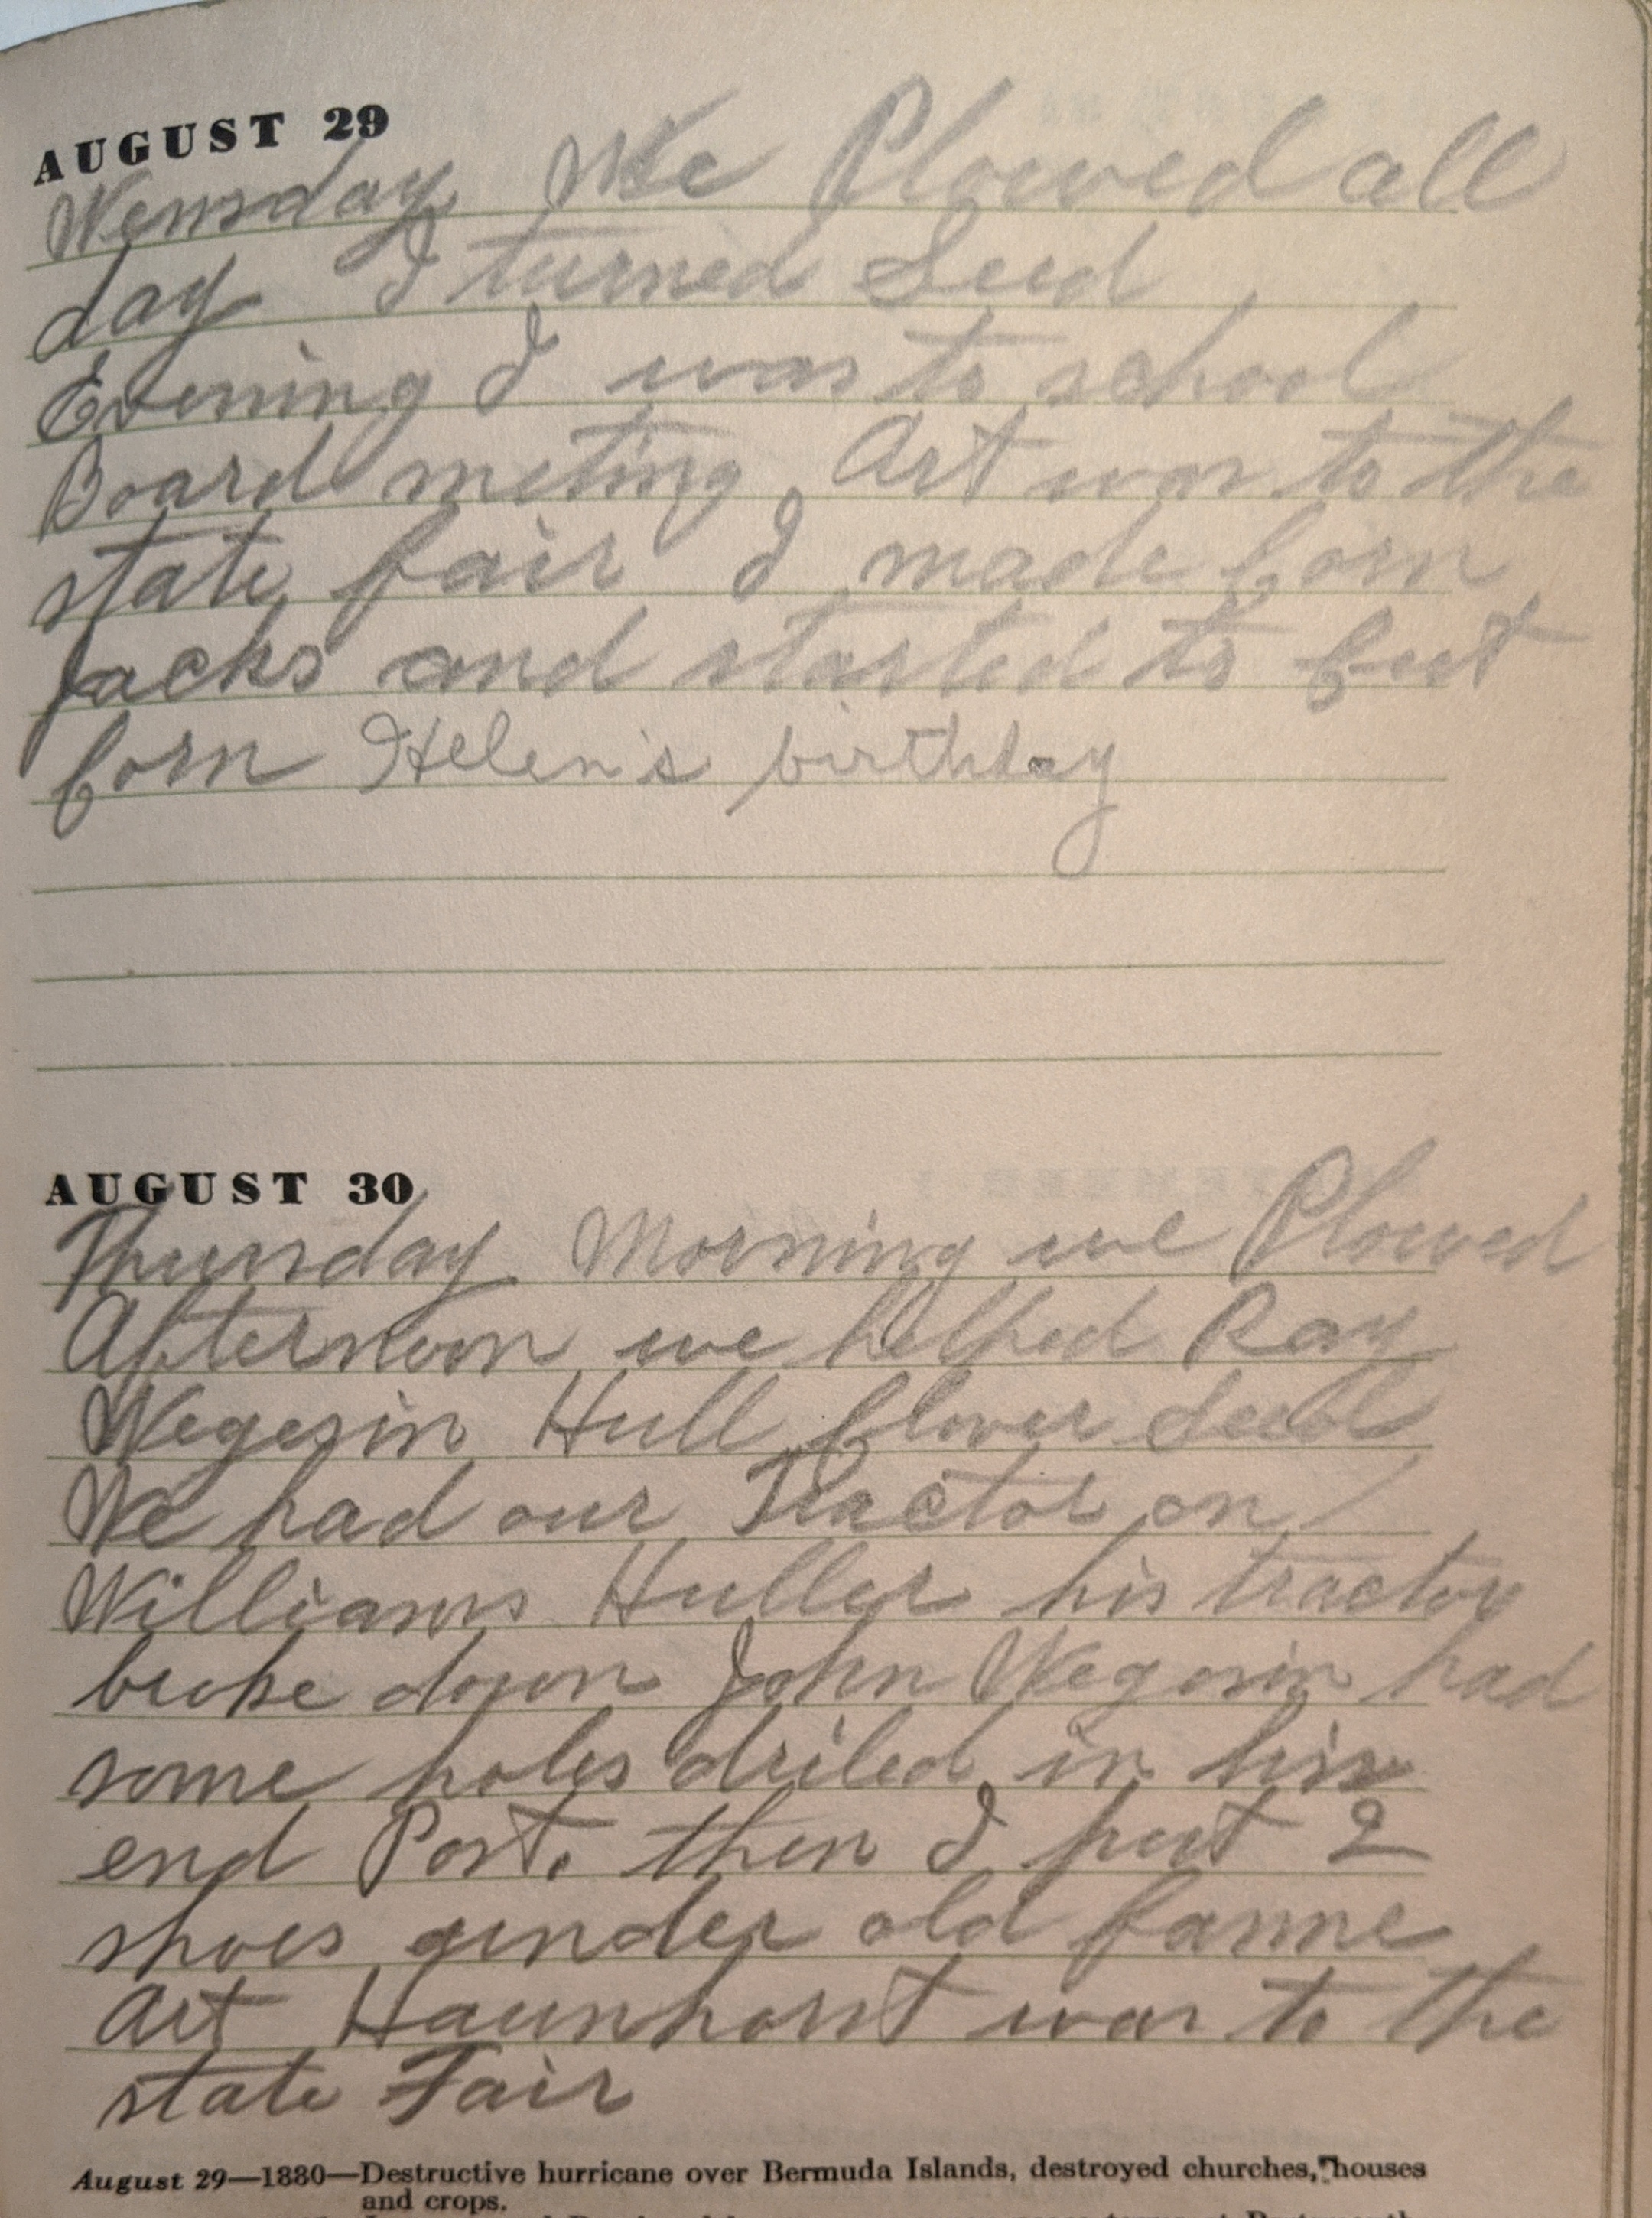 AUGUST 29
Wensday We Plowed all
day I turned Seed
Evening I was to school
Board meting Art was to the
state fair I made Corn
Jacks and started to Cut
Corn Helen's birthday
AUGUST 30
Thursday Morning we Plowed
Afternoon we helped Ray
Wegesin Hull Clover Seed
We had our Tractor on
Williams Huller his tractor
broke down John Wegesin had
some holes driled in his
end Post. then I put 2
shoes under old fanne
Art Haunhorst was to the
state Fair
August 29—1880—Destructive hurricane over Bermuda Islands, destroyed churches, houses
and crops.